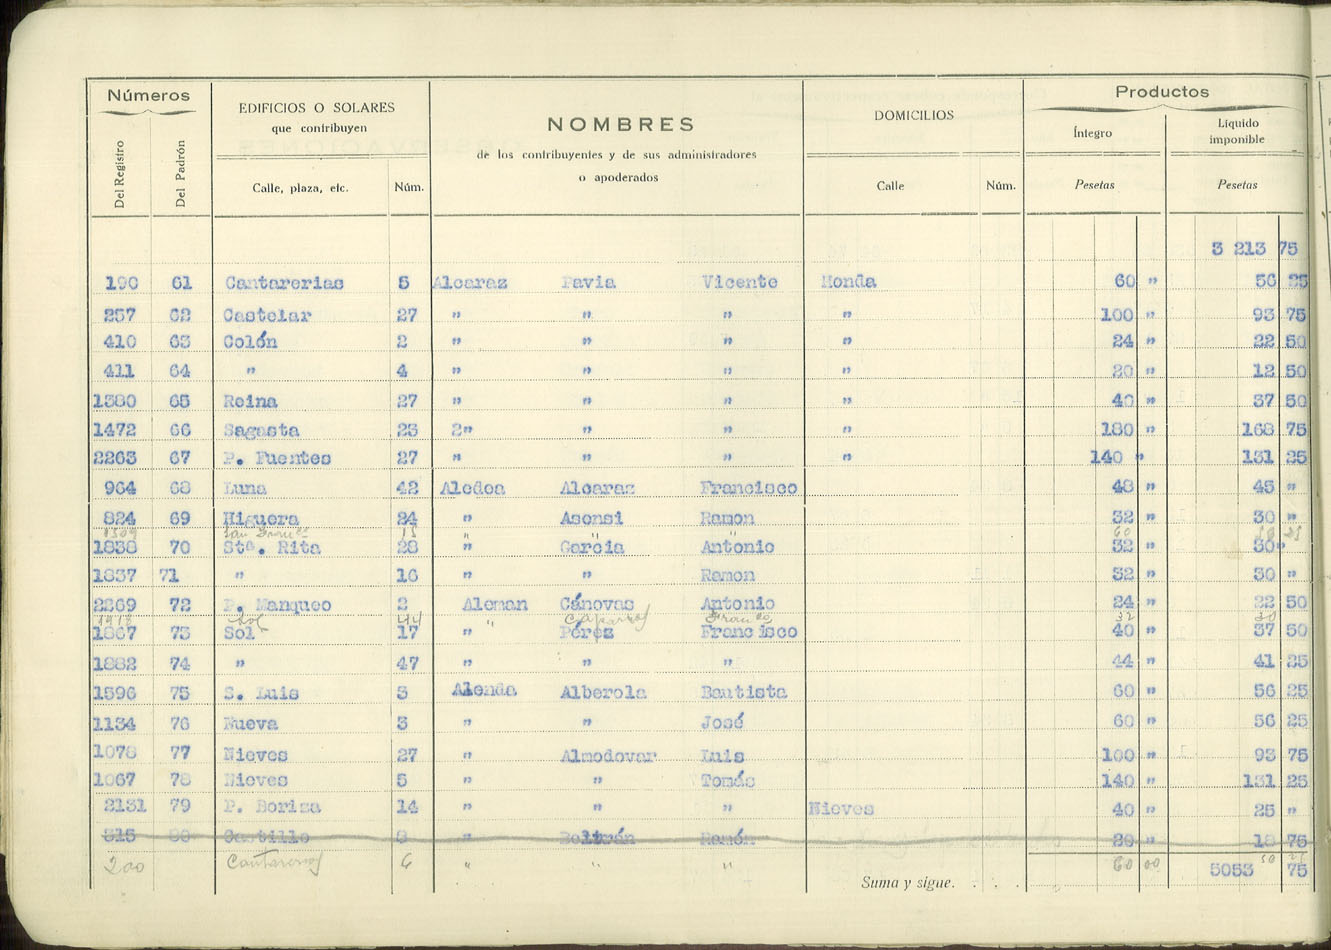 Números EDIFICIOS O SOLARES que contribuyen NOMBRES de los contribuyentes y de sus administradores o apoderados DOMICILIOS Productos
Íntegro Líquido imponible
Del Registro Del Padrón Calle, plaza, etc. Núm. Calle Núm. Pesetas Pesetas
3 213 75
190 61 Cantarerias 5 Alcaraz Pavia Vicente Monda 60 " 56 25
257 62 Castelar 27 " " " " 100 " 93 75
410 63 Colón 2 " " " " 24 " 22 50
411 64 " 4 " " " " 20 " 12 50
1380 65 Reina 27 " " " " 40 " 37 50
1472 66 Sagasta 23 2" " " " 180 " 168 75
2263 67 P. Fuentes 27 " " " " 140 " 131 25
964 68 Luna 42 Aledoa Alcaraz Francisco 48 " 45 "
824 69 Higuera 24 " Asensi Ramon 32 " 30 "
15 " " " 60
1838 70 Stª. Rita 28 " Garcia Antonio 32 " 30 "
1837 71 " 16 " " Ramon 32 " 30 "
2269 72 P. Manqueo 2 Aleman Cánovas Antonio 24 " 22 50
1918 Sol 44 " Caparros Franco 32 30
1867 73 Sol 17 " Pérez Francisco 40 " 37 50
1882 74 " 47 " " " 44 " 41 25
1596 75 S. Luis 3 Alenda Alberola Bautista 60 " 56 25
1134 76 Nueva 3 " " José 60 " 56 25
1078 77 Nieves 27 " Almodovar Luis 100 " 93 75
1067 78 Nieves 5 " " Tomás 140 " 131 25
2131 79 P. Borisa 14 " " " Nieves 40 " 25 "
315 80 Castillo 8 " Beltrán Ramón 20 " 18 75
200 Cantareros 6 " " " 60 00
Suma y sigue. . . . 5053 75